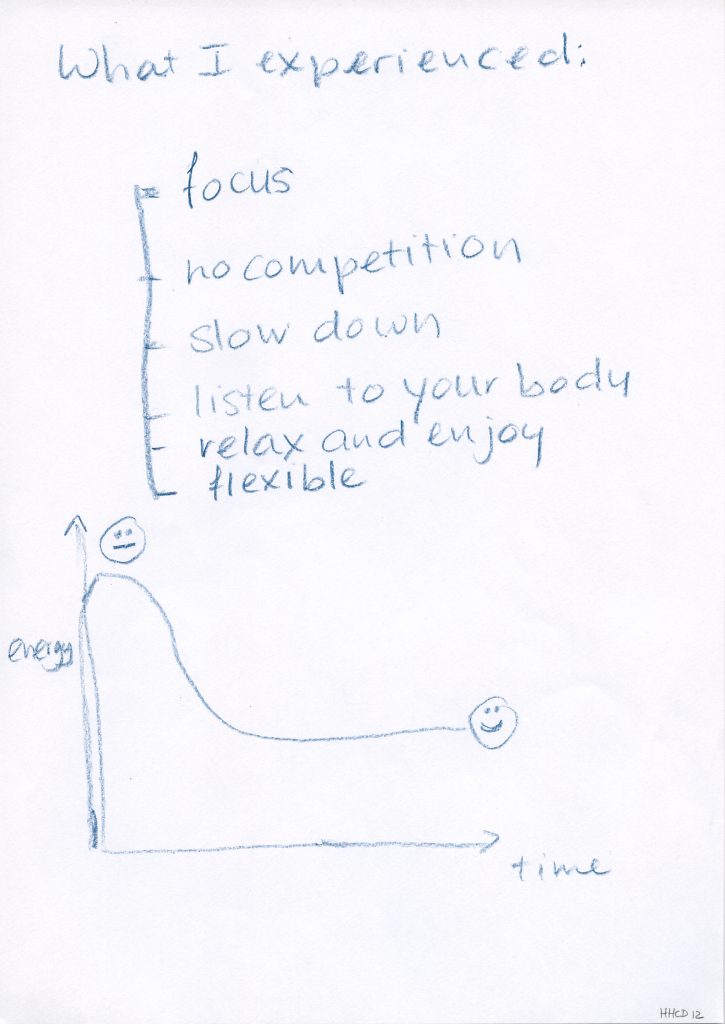 What I experienced:
focus
no competition
slow down
listen to your body
relax and enjoy
flexible
energy
time
HHCD 12